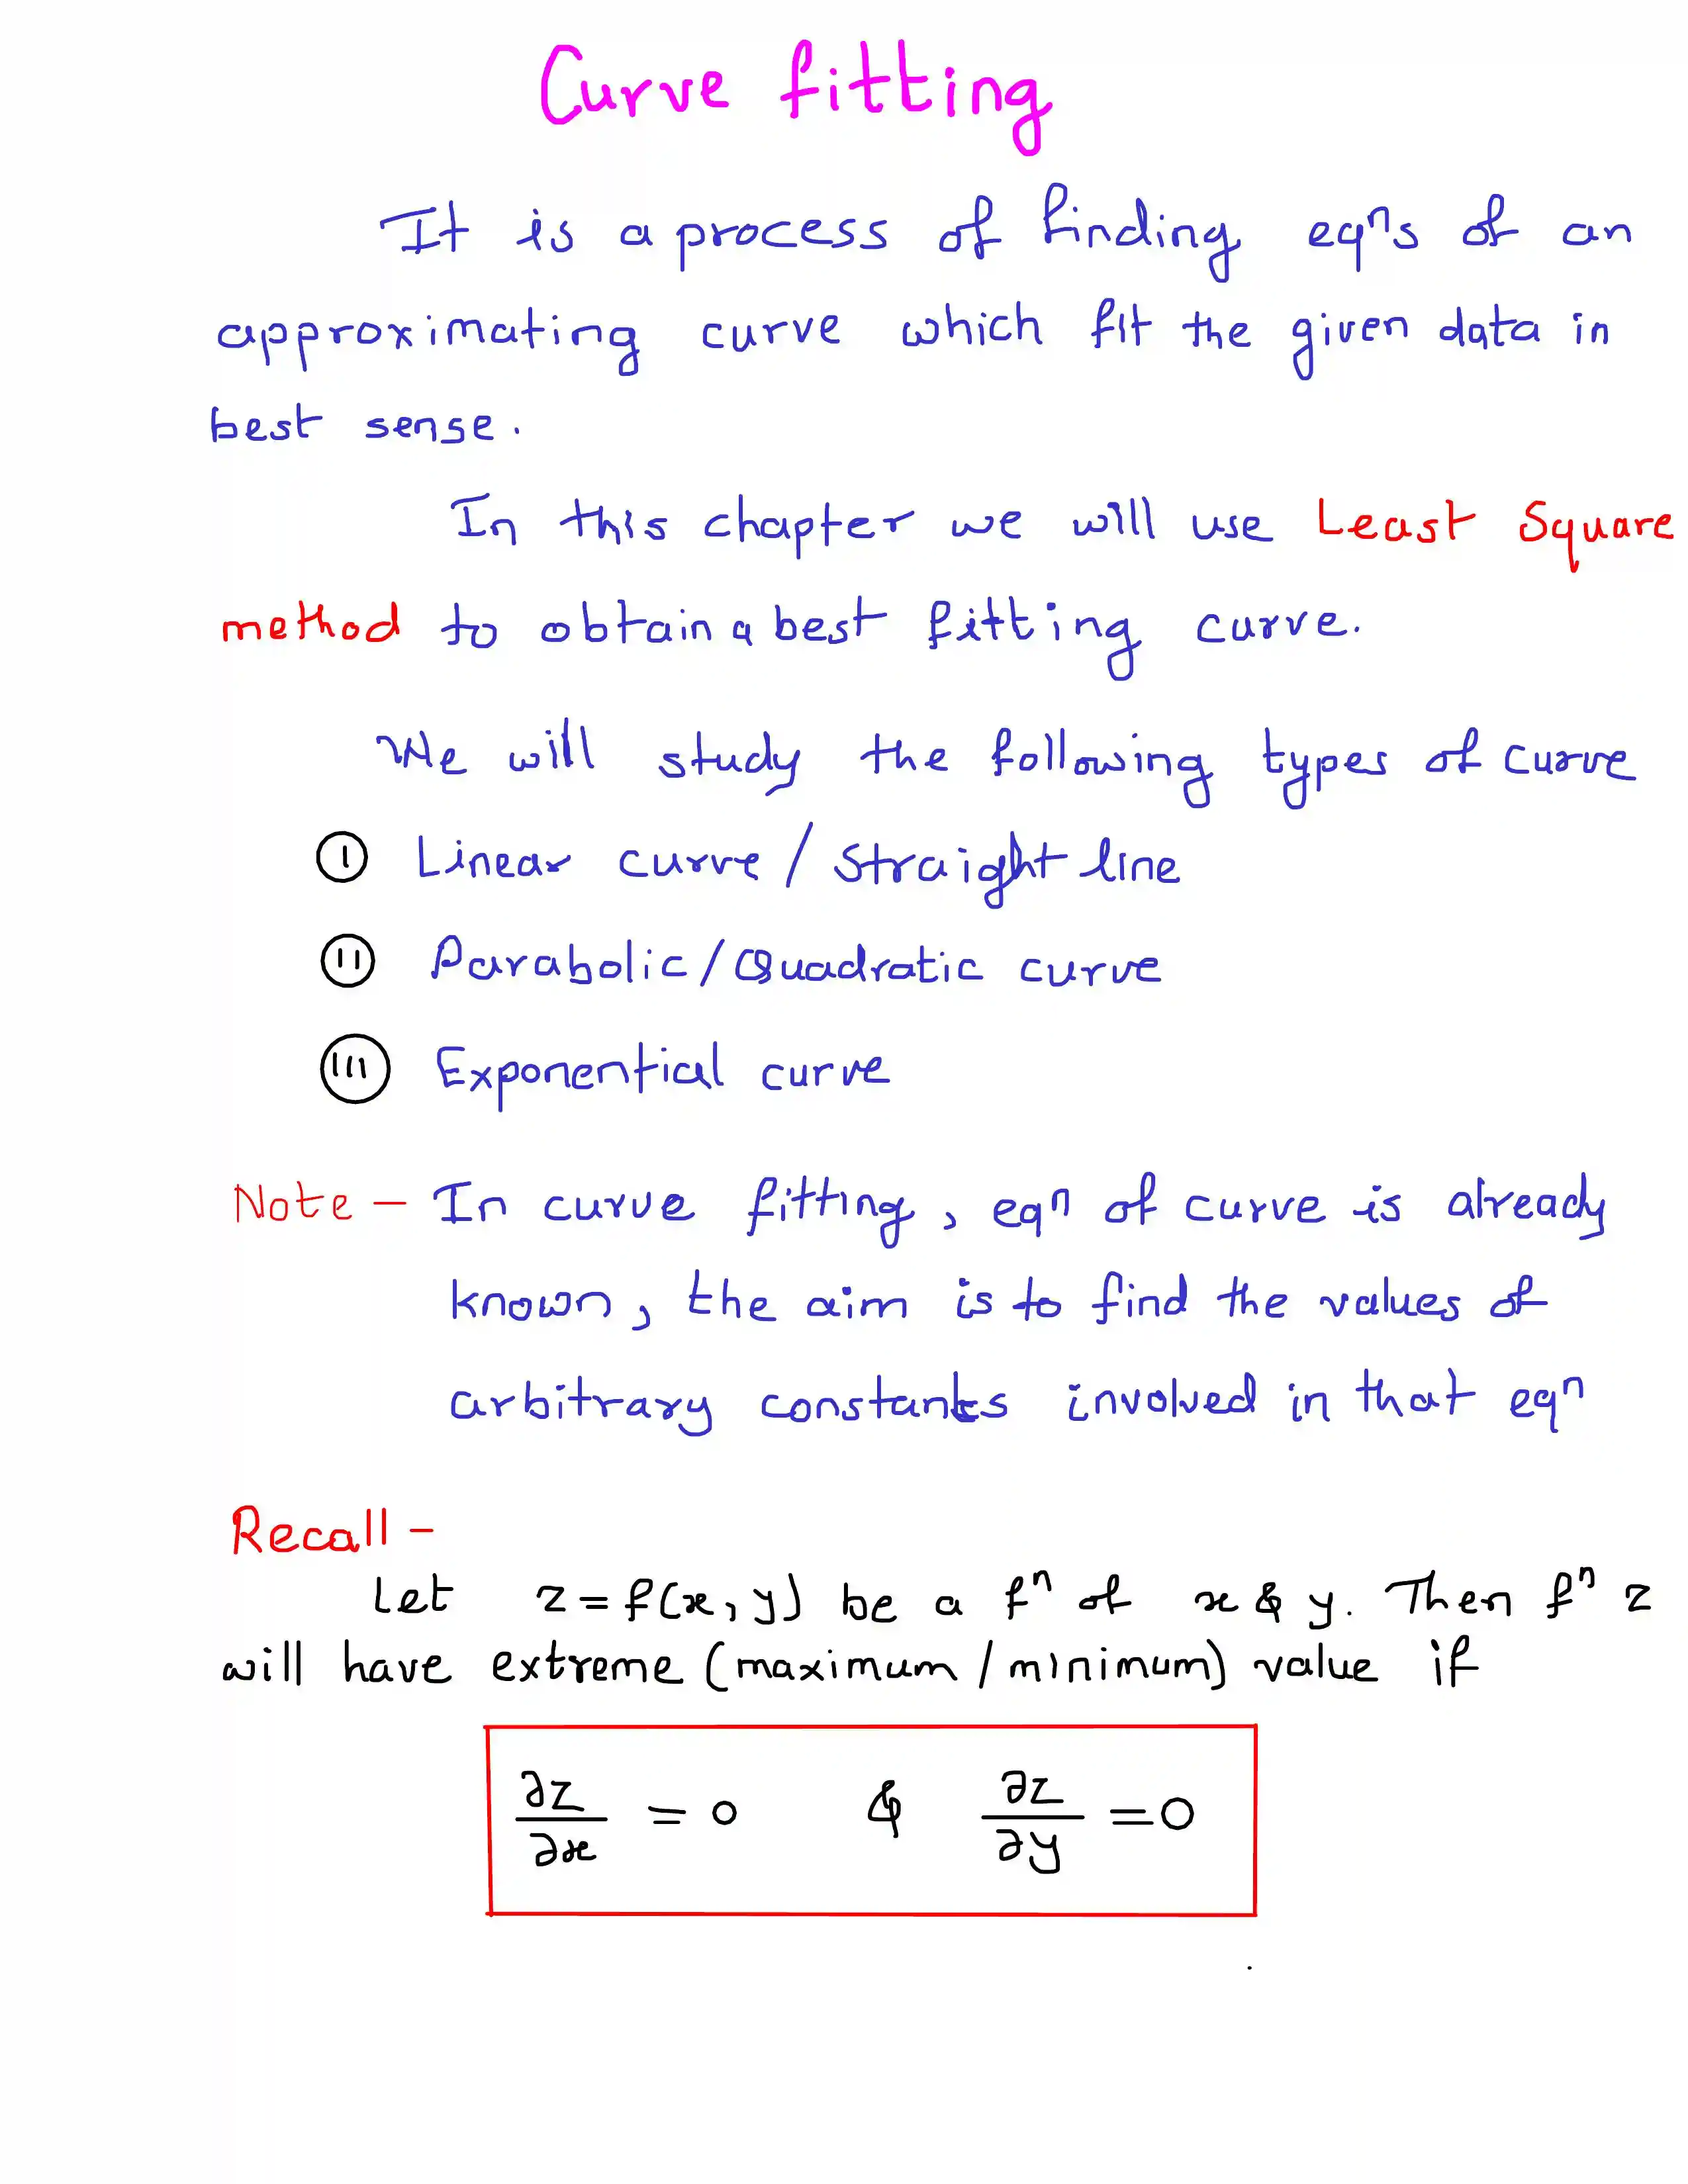 Curve fitting
It is a process of finding eqⁿs of an
approximating curve which fit the given data in
best sense.
In this chapter we will use Least Square
method to obtain a best fitting curve.
We will study the following types of curve
(I) Linear curve / Straight line
(II) Parabolic/Quadratic curve
(III) Exponential curve
Note - In curve fitting, eqⁿ of curve is already
known, the aim is to find the values of
arbitrary constants involved in that eqⁿ
Recall -
Let z = f(x, y) be a fⁿ of x & y. Then fⁿ z
will have extreme (maximum / minimum) value if
∂z/∂x = 0 & ∂z/∂y = 0